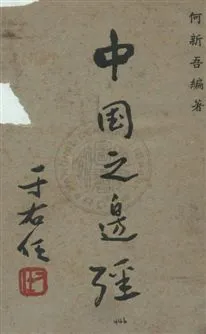 何新吾編著
中国之邊疆
于右任